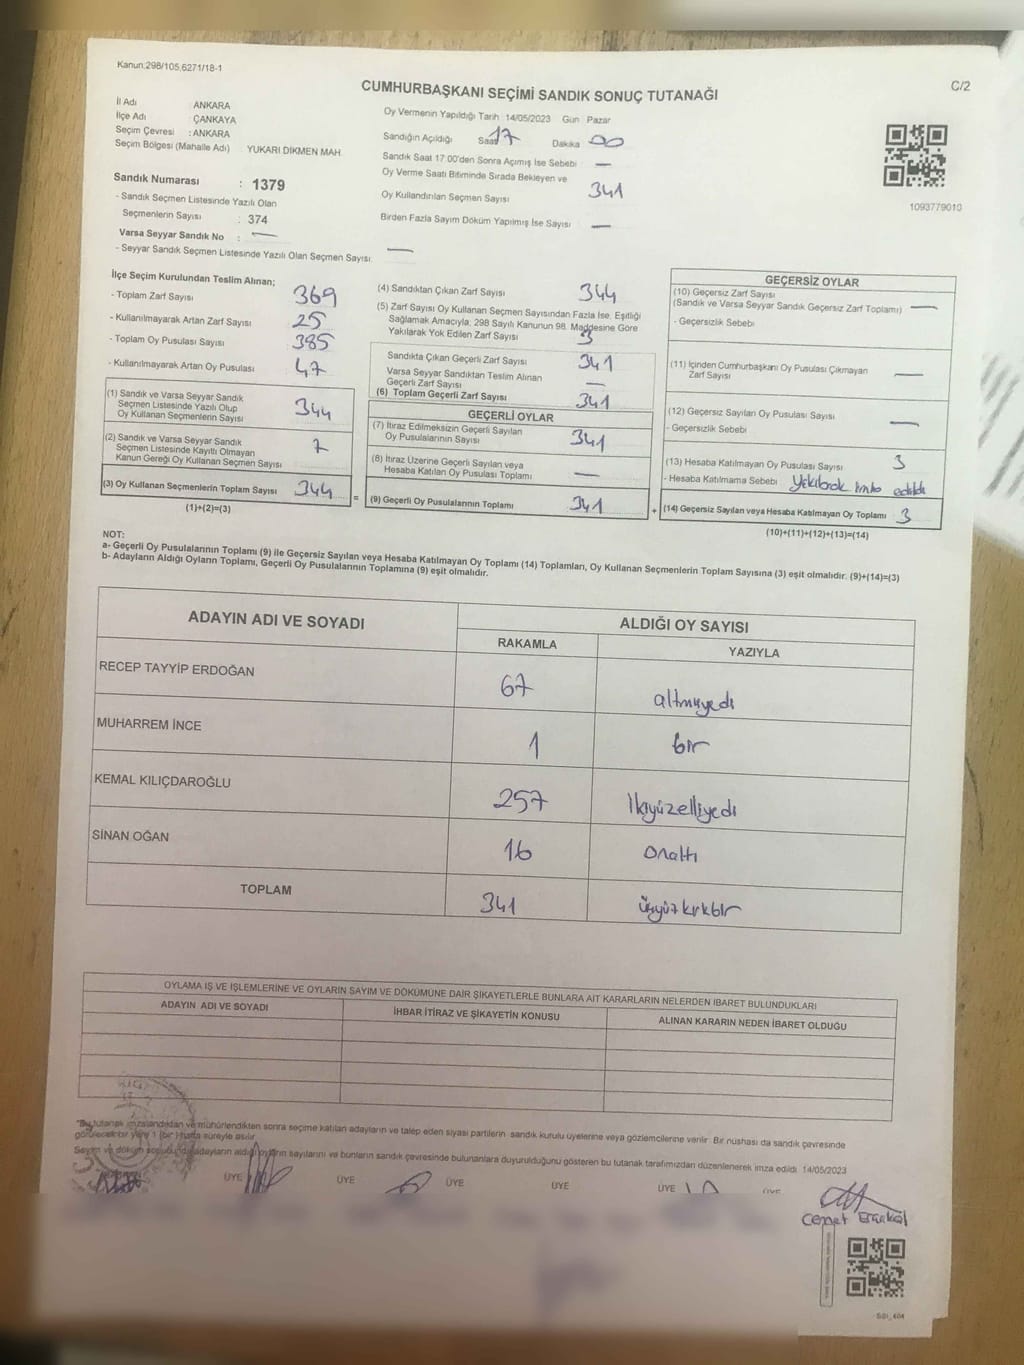 Kanun:298/105,6271/18-1
C/2
CUMHURBAŞKANI SEÇİMİ SANDIK SONUÇ TUTANAĞI
İl Adı : ANKARA
İlçe Adı : ÇANKAYA
Seçim Çevresi : ANKARA
Seçim Bölgesi (Mahalle Adı) : YUKARI DİKMEN MAH.
Sandık Numarası : 1379
- Sandık Seçmen Listesinde Yazılı Olan
Seçmenlerin Sayısı : 374
Varsa Seyyar Sandık No : —
- Seyyar Sandık Seçmen Listesinde Yazılı Olan Seçmen Sayısı: —
Oy Vermenin Yapıldığı Tarih 14/05/2023 Gün Pazar
Sandığın Açıldığı Saat 17 Dakika 00
Sandık Saat 17:00'den Sonra Açımış İse Sebebi —
Oy Verme Saati Bitiminde Sırada Bekleyen ve
Oy Kullandırılan Seçmen Sayısı 341
Birden Fazla Sayım Döküm Yapılmış İse Sayısı —
1093779010
İlçe Seçim Kurulundan Teslim Alınan;
- Toplam Zarf Sayısı 369
- Kullanılmayarak Artan Zarf Sayısı 25
- Toplam Oy Pusulası Sayısı 385
- Kullanılmayarak Artan Oy Pusulası 47
(1) Sandık ve Varsa Seyyar Sandık
Seçmen Listesinde Yazılı Olup
Oy Kullanan Seçmenlerin Sayısı 344
(2) Sandık ve Varsa Seyyar Sandık
Seçmen Listesinde Kayıtlı Olmayan
Kanun Gereği Oy Kullanan Seçmen Sayısı 7
(3) Oy Kullanan Seçmenlerin Toplam Sayısı 344
(1)+(2)=(3)
=
(4) Sandıktan Çıkan Zarf Sayısı 344
(5) Zarf Sayısı Oy Kullanan Seçmen Sayısından Fazla İse, Eşitliği
Sağlamak Amacıyla; 298 Sayılı Kanunun 98. Maddesine Göre
Yakılarak Yok Edilen Zarf Sayısı 3
Sandıkta Çıkan Geçerli Zarf Sayısı 341
Varsa Seyyar Sandıktan Teslim Alınan
Geçerli Zarf Sayısı —
(6) Toplam Geçerli Zarf Sayısı 341
GEÇERLİ OYLAR
(7) İtiraz Edilmeksizin Geçerli Sayılan
Oy Pusulalarının Sayısı 341
(8) İtiraz Üzerine Geçerli Sayılan veya
Hesaba Katılan Oy Pusulası Toplamı —
(9) Geçerli Oy Pusulalarının Toplamı 341
+
GEÇERSİZ OYLAR
(10) Geçersiz Zarf Sayısı
(Sandık ve Varsa Seyyar Sandık Geçersiz Zarf Toplamı) —
- Geçersizlik Sebebi
(11) İçinden Cumhurbaşkanı Oy Pusulası Çıkmayan
Zarf Sayısı —
(12) Geçersiz Sayılan Oy Pusulası Sayısı
- Geçersizlik Sebebi —
(13) Hesaba Katılmayan Oy Pusulası Sayısı 3
- Hesaba Katılmama Sebebi Yakılarak imha edildi
(14) Geçersiz Sayılan veya Hesaba Katılmayan Oy Toplamı 3
(10)+(11)+(12)+(13)=(14)
NOT:
a- Geçerli Oy Pusulalarının Toplamı (9) ile Geçersiz Sayılan veya Hesaba Katılmayan Oy Toplamı (14) Toplamları, Oy Kullanan Seçmenlerin Toplam Sayısına (3) eşit olmalıdır. (9)+(14)=(3)
b- Adayların Aldığı Oyların Toplamı, Geçerli Oy Pusulalarının Toplamına (9) eşit olmalıdır.
ADAYIN ADI VE SOYADI
ALDIĞI OY SAYISI
RAKAMLA YAZIYLA
RECEP TAYYİP ERDOĞAN 67 altmışyedi
MUHARREM İNCE 1 bir
KEMAL KILIÇDAROĞLU 257 İkiyüzelliyedi
SİNAN OĞAN 16 Onaltı
TOPLAM 341 üçyüzkırkbir
OYLAMA İŞ VE İŞLEMLERİNE VE OYLARIN SAYIM VE DÖKÜMÜNE DAİR ŞİKAYETLERLE BUNLARA AİT KARARLARIN NELERDEN İBARET BULUNDUKLARI
ADAYIN ADI VE SOYADI İHBAR İTİRAZ VE ŞİKAYETİN KONUSU ALINAN KARARIN NEDEN İBARET OLDUĞU
"Bu tutanak imzalandıktan ve mühürlendikten sonra seçime katılan adayların ve talep eden siyasi partilerin sandık kurulu üyelerine veya gözlemcilerine verilir. Bir nüshası da sandık çevresinde
görülecek bir yere 1 (bir) hafta süreyle asılır.
Sayım ve döküm sonucunda adayların aldığı oyların sayılarını ve bunların sandık çevresinde bulunanlara duyurulduğunu gösteren bu tutanak tarafımızdan düzenlenerek imza edildi. 14/05/2023
ÜYE ÜYE ÜYE ÜYE ÜYE ÜYE